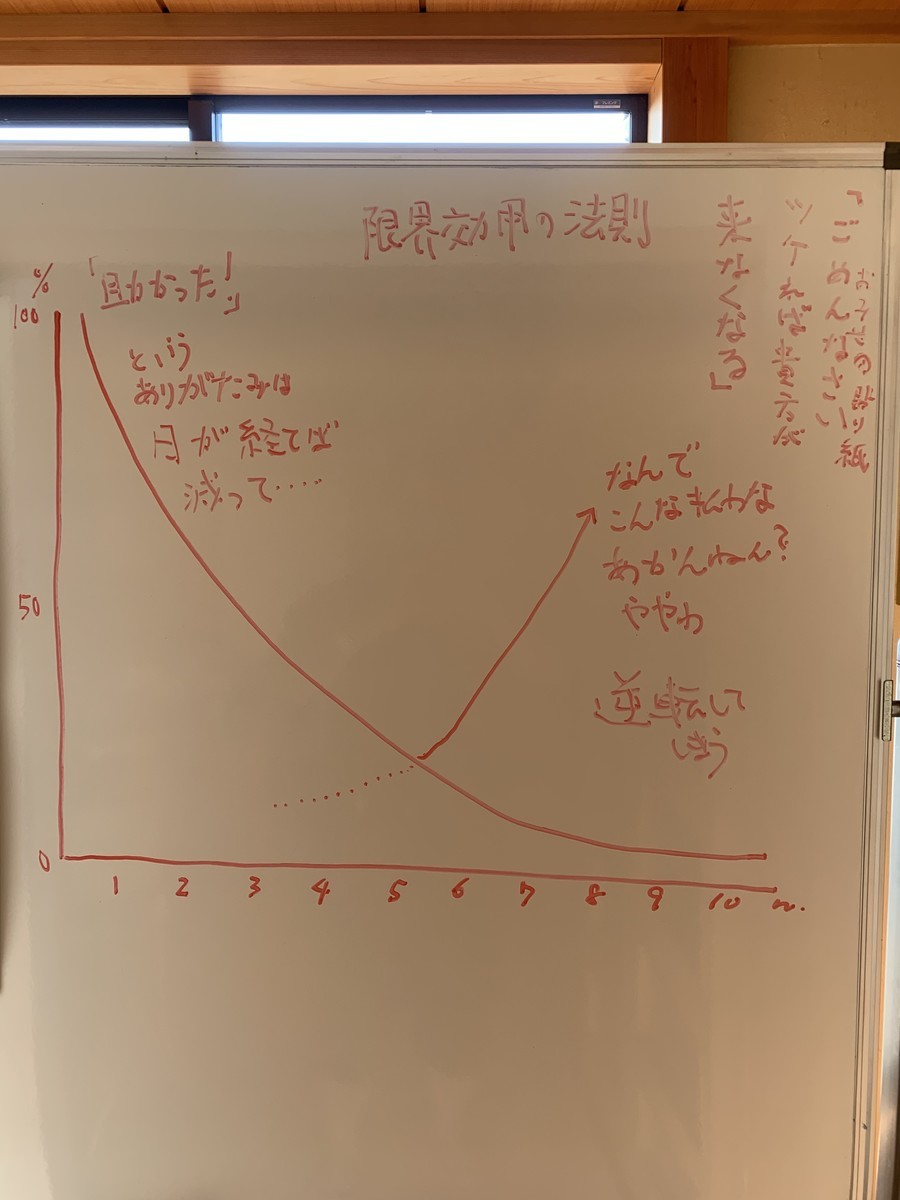 限界効用の法則
お子吉田貼り紙
「ごめんなさい
ツケれば貴方が
来なくなる」
%
100
「助かった!」
という
ありがたみは
月が経てば
減って・・・・・
なんで
こんな払わな
あかんねん?
ややわ
50
逆転して
しまう
0
1 2 3 4 5 6 7 8 9 10 m.